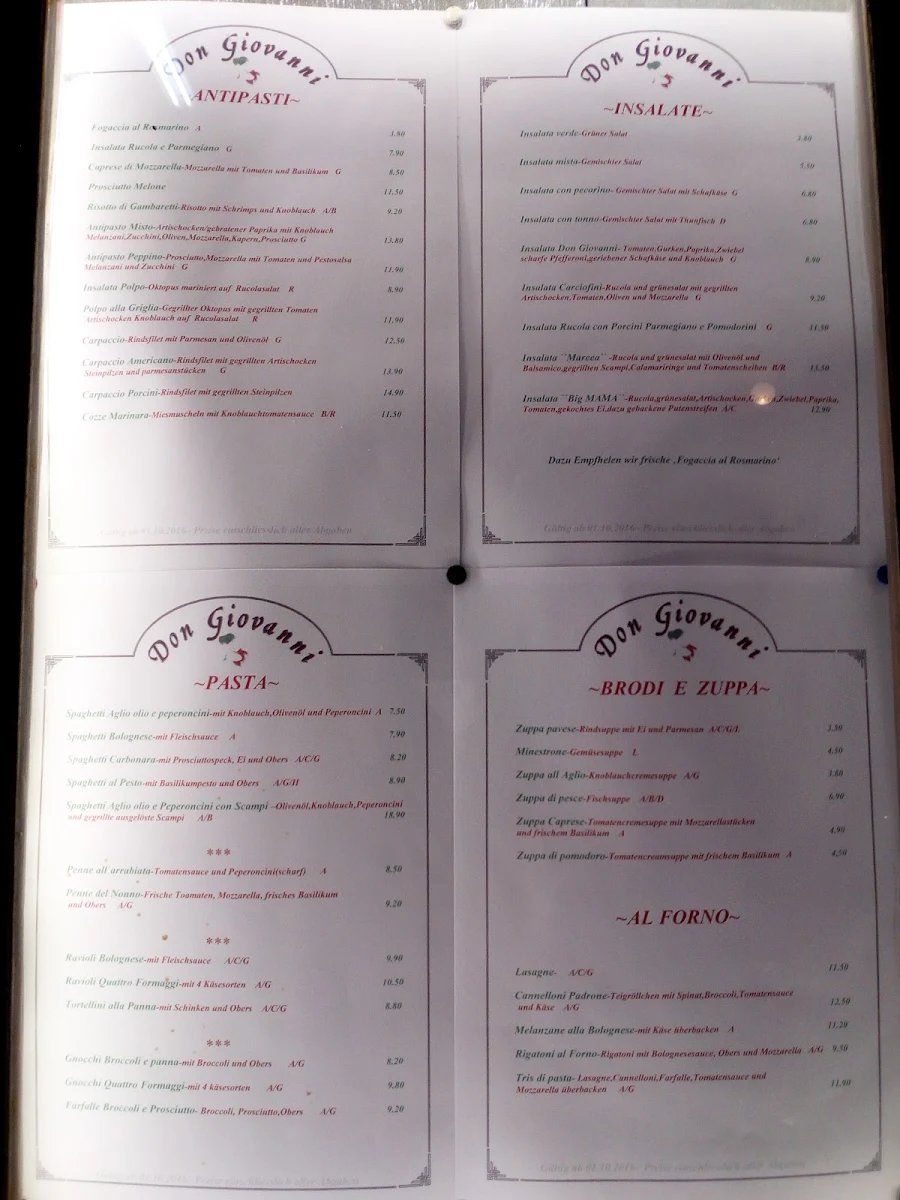 Don Giovanni
ANTIPASTI~
Fogaccia al Rosmarino A 3.80
Insalata Rucola e Parmegiano G 7.90
Caprese di Mozzarella-Mozzarella mit Tomaten und Basilikum G 8.50
Prosciutto Melone 11.50
Risotto di Gambaretti-Risotto mit Schrimps und Knoblauch A/B 9.20
Antipasto Misto-Artischocken/gebratener Paprika mit Knoblauch
Melanzani,Zucchini,Oliven,Mozzarella,Kapern,Prosciutto G 13.80
Antipasto Peppino-Prosciutto,Mozzarella mit Tomaten und Pestosalsa
Melanzani und Zucchini G 11.90
Insalata Polpo-Oktopus mariniert auf Rucolasalat R 8.90
Polpo alla Griglia-Gegrillter Oktopus mit gegrillten Tomaten
Artischocken Knoblauch auf Rucolasalat R 11.90
Carpaccio-Rindsfilet mit Parmesan und Olivenöl G 12.50
Carpaccio Americano-Rindsfilet mit gegrillten Artischocken
Steinpilzen und parmesanstücken G 13.90
Carpaccio Porcini-Rindsfilet mit gegrillten Steinpilzen 14.90
Cozze Marinara-Miesmuscheln mit Knoblauchtomatensauce B/R 11.50
Gültig ab 01.10.2016- Preise einschliesslich aller Abgaben
Don Giovanni
~INSALATE~
Insalata verde-Grüner Salat 3.80
Insalata mista-Gemischter Salat 5.50
Insalata con pecorino- Gemischter Salat mit Schafkäse G 6.80
Insalata con tonno-Gemischter Salat mit Thunfisch D 6.80
Insalata Don Giovanni- Tomaten,Gurken,Paprika,Zwiebel
scharfe Pfefferoni,geriebener Schafkäse und Knoblauch G 8.90
Insalata Carciofini-Rucola und grünesalat mit gegrillten
Artischocken,Tomaten,Oliven und Mozzarella G 9.20
Insalata Rucola con Porcini Parmegiano e Pomodorini G 11.50
Insalata ``Marcea`` -Rucola und grünesalat mit Olivenöl und
Balsamico,gegrillten Scampi,Calamariringe und Tomatenscheiben B/R 13.50
Insalata ``Big MAMA``-Rucola,grünesalat,Artischocken,Gurken,Zwiebel,Paprika,
Tomaten,gekochtes Ei,dazu gebackene Putenstreifen A/C 12.90
Dazu Empfhelen wir frische ‚Fogaccia al Rosmarino‘
Gültig ab 01.10.2016- Preise einschliesslich aller Abgaben
Don Giovanni
~PASTA~
Spaghetti Aglio olio e peperoncini-mit Knoblauch,Olivenöl und Peperoncini A 7.50
Spaghetti Bolognese-mit Fleischsauce A 7.90
Spaghetti Carbonara-mit Prosciuttospeck, Ei und Obers A/C/G 8.20
Spaghetti al Pesto-mit Basilikumpesto und Obers A/G/H 8.90
Spaghetti Aglio olio e Peperoncini con Scampi –Olivenöl,Knoblauch,Peperoncini
und gegrillte ausgelöste Scampi A/B 18,90
***
Penne all`arrabiata-Tomatensauce und Peperoncini(scharf) A 8.50
Penne del Nonno-Frische Toamaten, Mozzarella, frisches Basilikum
und Obers A/G 9.20
***
Ravioli Bolognese-mit Fleischsauce A/C/G 9.90
Ravioli Quattro Formaggi-mit 4 Käsesorten A/G 10.50
Tortellini alla Panna-mit Schinken und Obers A/C/G 8.80
***
Gnocchi Broccoli e panna-mit Broccoli und Obers A/G 8.20
Gnocchi Quattro Formaggi-mit 4 käsesorten A/G 9.80
Farfalle Broccoli e Prosciutto- Broccoli, Prosciutto,Obers A/G 9.20
Don Giovanni
~BRODI E ZUPPA~
Zuppa pavese-Rindsuppe mit Ei und Parmesan A/C/G/L 3.50
Minestrone-Gemüsesuppe L 4.50
Zuppa all Aglio-Knoblauchcremesuppe A/G 3.80
Zuppa di pesce-Fischsuppe A/B/D 6.90
Zuppa Caprese-Tomatencremesuppe mit Mozzarellastücken
und frischem Basilikum A 4.90
Zuppa di pomodoro-Tomatencreamsuppe mit frischem Basilikum A 4,50
~AL FORNO~
Lasagne- A/C/G 11.50
Cannelloni Padrone-Teigröllchen mit Spinat,Broccoli,Tomatensauce
und Käse A/G 12.50
Melanzane alla Bolognese-mit Käse überbacken A 11.20
Rigatoni al Forno-Rigatoni mit Bolognesesauce, Obers und Mozzarella A/G 9.50
Tris di pasta- Lasagne,Cannelloni,Farfalle,Tomatensauce und
Mozzarella überbacken A/G 11.90
Gültig ab 01.10.2016- Preise einschliesslich aller Abgaben